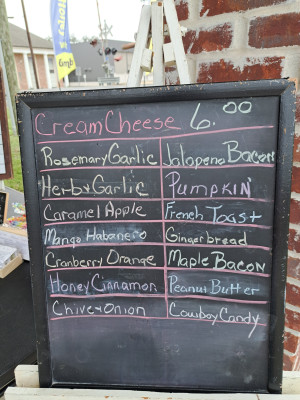 Cream Cheese 6.00
Rosemary Garlic Jalapeno Bacon
Herb & Garlic Pumpkin
Caramel Apple French Toast
Mango Habanero Gingerbread
Cranberry Orange Maple Bacon
Honey Cinnamon Peanut Butter
Chive & Onion Cowboy Candy